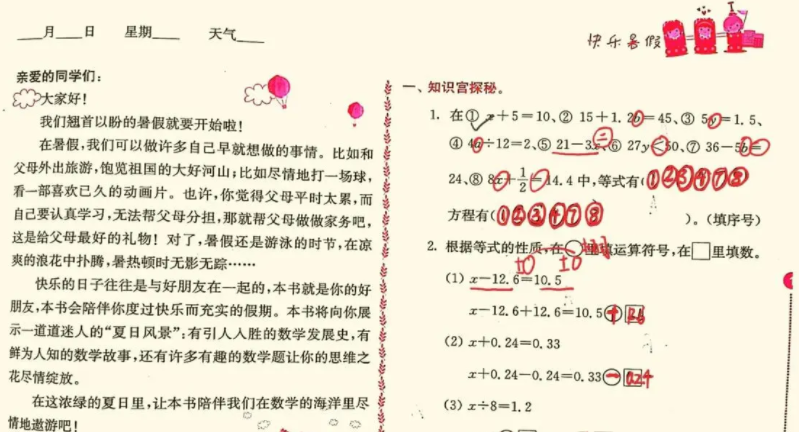 ____月____日 星期____ 天气____
亲爱的同学们：
大家好！
我们翘首以盼的暑假就要开始啦！
在暑假，我们可以做许多自己早就想做的事情。比如和
父母外出旅游，饱览祖国的大好河山；比如尽情地打一场球，
看一部喜欢已久的动画片。也许，你觉得父母平时太累，而
自己要认真学习，无法帮父母分担，那就帮父母做做家务吧，
这是给父母最好的礼物！对了，暑假还是游泳的时节，在凉
爽的浪花中扑腾，暑热顿时无影无踪……
快乐的日子往往是与好朋友在一起的，本书就是你的好
朋友，本书会陪伴你度过快乐而充实的假期。本书将向你展
示一道道迷人的“夏日风景”：有引人入胜的数学发展史，有
鲜为人知的数学故事，还有许多有趣的数学题让你的思维之
花尽情绽放。
在这浓绿的夏日里，让本书陪伴我们在数学的海洋里尽
情地遨游吧！
快乐暑假
一、知识宫探秘。
1. 在① x＋5＝10、② 15＋1.2b＝45、③ 5y＝1.5、
④ 4b÷12＝2、⑤ 21－3x、⑥ 27y＜50、⑦ 36－5b＝
24、⑧ 8x＋1/2＝14.4中，等式有(①②③④⑦⑧
方程有(①②③④⑦⑧ )。(填序号)
2. 根据等式的性质，在○里填运算符号，在□里填数。
±0 ±0
(1) x－12.6＝10.5
x－12.6＋12.6＝10.5＋
(2) x＋0.24＝0.33
x＋0.24－0.24＝0.33－0.24
(3) x÷8＝1.2